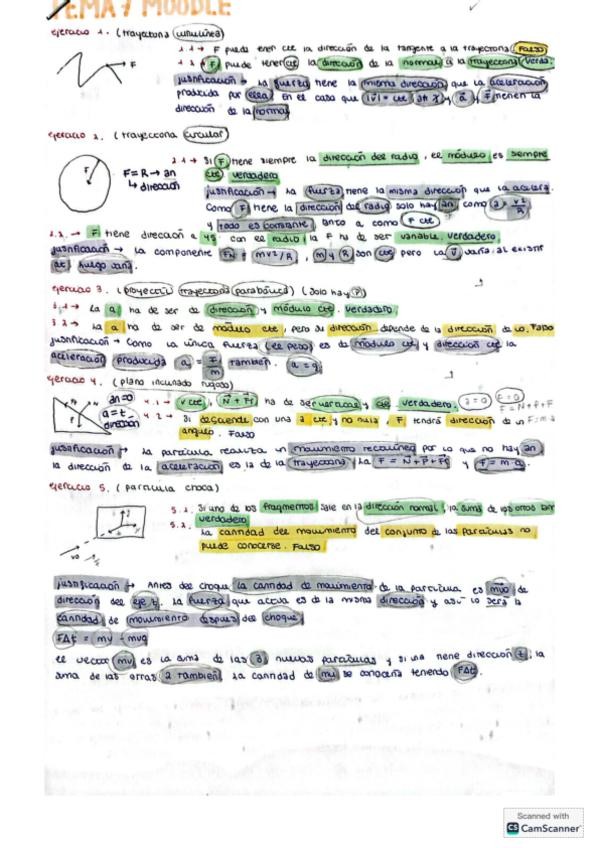 TEMA 7 MOODLE
ejercicio 1. (trayectoria curvilínea)
1.1 → F puede tener cte la dirección de la tangente a la trayectoria Falso
F puede tener cte la dirección de la normal a la trayectoria Verda.
F
justificación → La fuerza tiene la misma dirección que la aceleración
producida por ella. En el caso que |v| = cte y a y F tienen la
dirección de la normal
ejercicio 2. (trayectoria circular)
F
2.1 → Si F tiene siempre la dirección del radio, el módulo es siempre
F = R → an
cte verdadera
↳ dirección
justificación → La fuerza tiene la misma dirección que la acelera.
Como F tiene la dirección del radio solo hay an, como a = v²/R
y todo es constante, tanto a como F cte
2.2. → F tiene dirección a 45 con el radio, la F ha de ser variable. verdadero.
justificación → La componente FN = mv²/R, m y R son cte pero la v varía al existir
at, luego varía.
ejercicio 3. (proyectil) (trayectoria parabólica) (solo hay P)
3.1 → La a ha de ser de dirección y módulo cte. verdadero.
3.2 → La a ha de ser de módulo cte, pero su dirección depende de la dirección de vo. Falso
justificación → Como la única fuerza (el peso) es de módulo cte y dirección cte la
aceleración producida a = F/m también. a = g
ejercicio 4. (plano inclinado rugoso)
an=0
a=at→
dirección
4.1 → v cte, N + Fr ha de ser vertical y cte verdadero. a=0 F=0
F = N+P+F
4.2 → Si desciende con una a cte y no nula, F tendrá dirección de un F=m·a
angulo. Falso
justificación → La partícula realiza un movimiento rectilíneo por lo que no hay an,
la dirección de la aceleración es la de la trayectoria. La F = N+P+Fr y F = m·a.
ejercicio 5. (partícula choca)
5.1. Si uno de los fragmentos sale en la dirección normal, la suma de los otros tam
verdadero
5.2. La cantidad del movimiento del conjunto de las partículas no
puede conocerse. Falso
justificación → Antes del choque la cantidad de movimiento de la partícula es mvo de
dirección del eje z. La fuerza que actua es de la misma dirección y así lo será la
cantidad de movimiento después del choque
FΔt = mv - mvo
el vector mv es la suma de las 3 nuevas partículas y si una tiene dirección z, la
suma de las otras 2 también. La cantidad de mv se conocería teniendo FΔt.
Scanned with
CS CamScanner